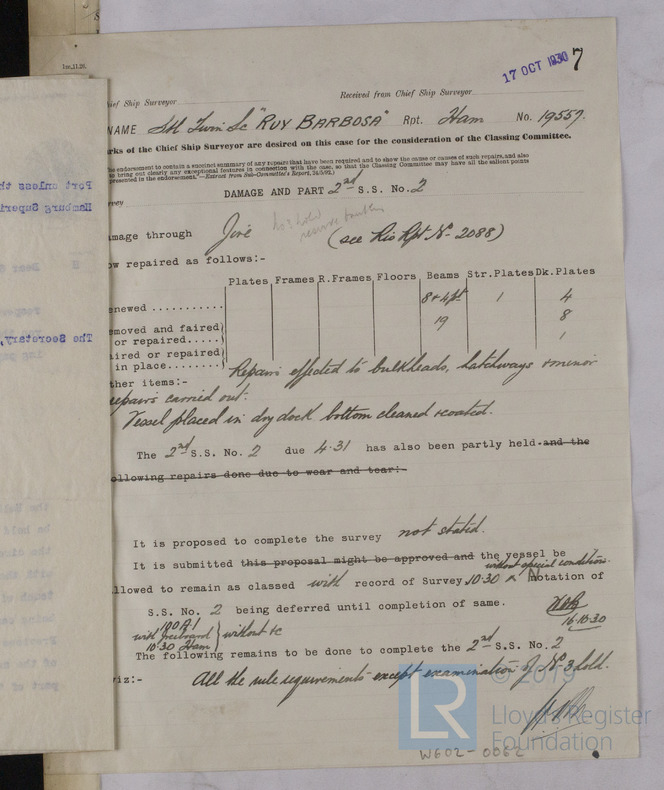 17 OCT 1930 7
Iss.11.29.
hief Ship Surveyor Received from Chief Ship Surveyor
NAME Stl Twin Sc "RUY BARBOSA" Rpt. Ham No. 19557.
rks of the Chief Ship Surveyor are desired on this case for the consideration of the Classing Committee.
endorsement to contain a succinct summary of any repairs that have been required and to show the cause or causes of such repairs, and also
to bring out clearly any exceptional features in connection with the case, so that the Classing Committee may have all the salient points
presented in the endorsement."—Extract from Sub-Committee's Report, 24/5/92.)
DAMAGE AND PART 2nd S.S. No. 2
rvey
No 3 hold
mage through Fire (see Rio Rpt No 2088)
ow repaired as follows:-
Plates Frames R.Frames Floors Beams Str.Plates Dk.Plates
enewed ........... 8+4pt 1 4
emoved and faired) 19 8
or repaired.....)
aired or repaired) 1
in place........)
ther items:- Repairs effected to bulkheads, hatchways & minor
epairs carried out.
Vessel placed in dry dock bottom cleaned & coated.
The 2nd S.S. No. 2 due 4.31 has also been partly held and the
ollowing repairs done due to wear and tear:-
It is proposed to complete the survey not stated.
It is submitted this proposal might be approved and the vessel be
without special condition.
llowed to remain as classed with record of Survey 10.30 Notation of
S.S. No. 2 being deferred until completion of same.
16.10.30
100A1
with freeboard } without &c
10.30 Ham
The following remains to be done to complete the 2nd S.S. No. 2
iz:- All the rule requirements except examination of No 3 hold.
© 2019
LR Lloyd's Register
Foundation
W602-0062
Port unless th
Hamburg Superi
The Secretary,